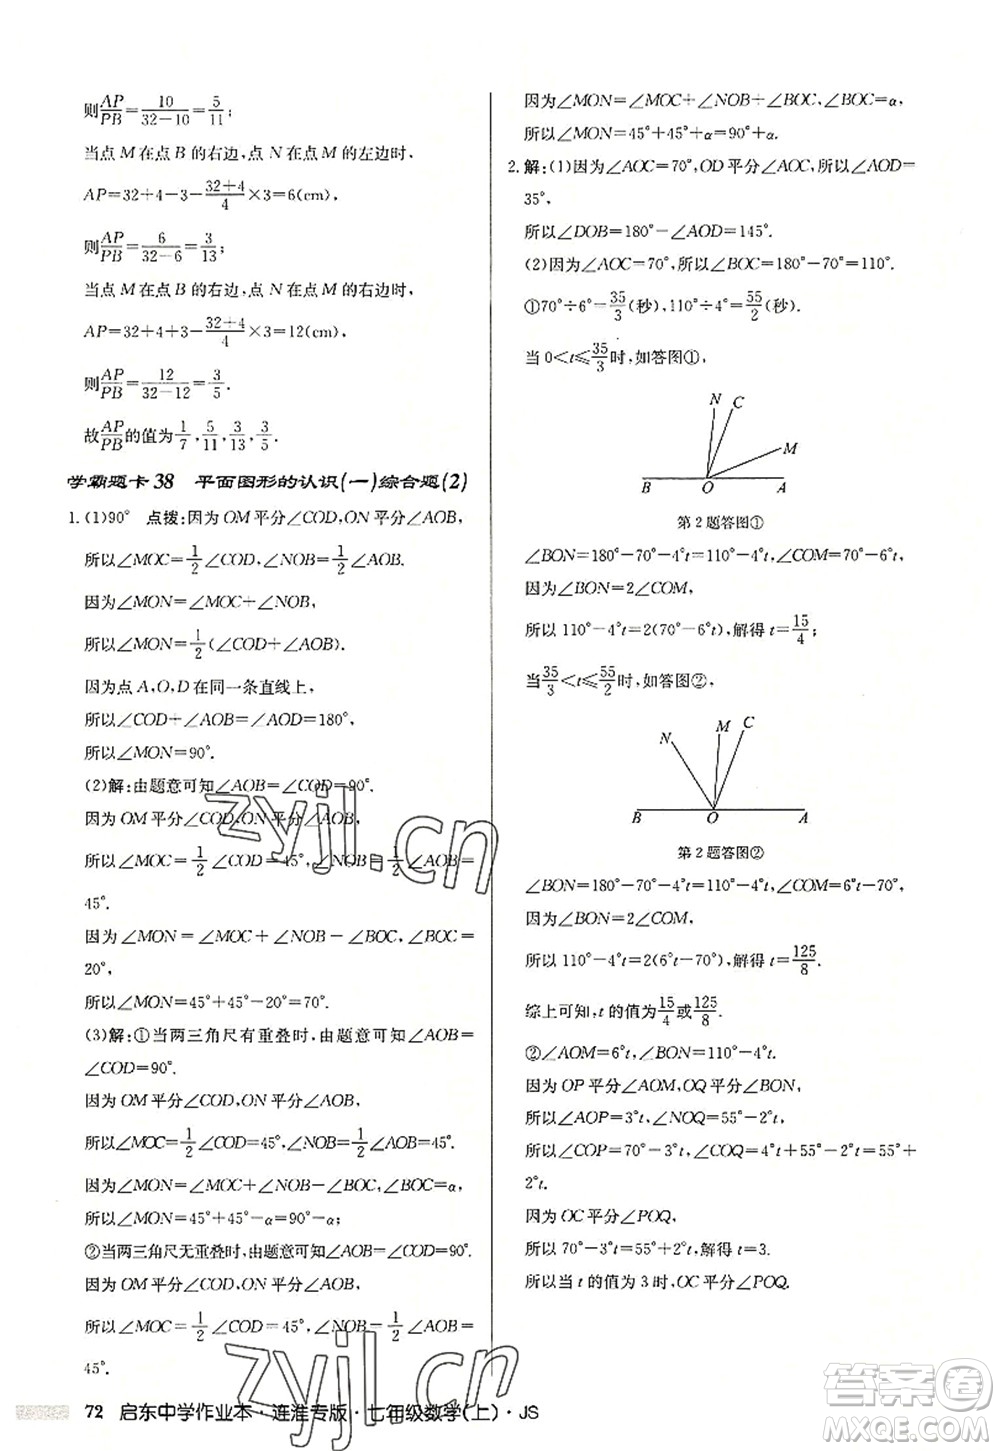 则AP/PB=10/(32-10)=5/11;
当点 M 在点 B 的右边,点 N 在点 M 的左边时,
AP=32+4-3-(32+4)/4×3=6(cm),
则AP/PB=6/(32-6)=3/13;
当点 M 在点 B 的右边,点 N 在点 M 的右边时,
AP=32+4+3-(32-4)/4×3=12(cm),
则AP/PB=12/(32-12)=3/5.
故AP/PB的值为1/7,5/11,3/13,3/5.
学霸题卡 38 平面图形的认识(一)综合题(2)
1.(1)90° 点拨:因为 OM 平分∠COD,ON 平分∠AOB,
所以∠MOC=1/2∠COD,∠NOB=1/2∠AOB.
因为∠MON=∠MOC+∠NOB,
所以∠MON=1/2(∠COD+∠AOB).
因为点 A,O,D 在同一条直线上,
所以∠COD+∠AOB=∠AOD=180°,
所以∠MON=90°.
(2)解:由题意可知∠AOB=∠COD=90°.
因为 OM 平分∠COD,ON 平分∠AOB,
所以∠MOC=1/2∠COD=45°,∠NOB=1/2∠AOB=
45°.
因为∠MON=∠MOC+∠NOB-∠BOC,∠BOC=
20°,
所以∠MON=45°+45°-20°=70°.
(3)解:①当两三角尺有重叠时,由题意可知∠AOB=
∠COD=90°.
因为 OM 平分∠COD,ON 平分∠AOB,
所以∠MOC=1/2∠COD=45°,∠NOB=1/2∠AOB=45°.
因为∠MON=∠MOC+∠NOB-∠BOC,∠BOC=α,
所以∠MON=45°+45°-α=90°-α;
②当两三角尺无重叠时,由题意可知∠AOB=∠COD=90°.
因为 OM 平分∠COD,ON 平分∠AOB,
所以∠MOC=1/2∠COD=45°,∠NOB=1/2∠AOB=
45°.
因为∠MON=∠MOC+∠NOB+∠BOC,∠BOC=α,
所以∠MON=45°+45°+α=90°+α.
2.解:(1)因为∠AOC=70°,OD 平分∠AOC,所以∠AOD=
35°,
所以∠DOB=180°-∠AOD=145°.
(2)因为∠AOC=70°,所以∠BOC=180°-70°=110°.
①70°÷6°=35/3(秒),110°÷4°=55/2(秒).
当 0<t≤35/3时,如答图①,
N C
M
B O A
第 2 题答图①
∠BON=180°-70°-4°t=110°-4°t,∠COM=70°-6°t,
因为∠BON=2∠COM,
所以 110°-4°t=2(70°-6°t),解得 t=15/4;
当35/3<t≤55/2时,如答图②,
N M C
B O A
第 2 题答图②
∠BON=180°-70°-4°t=110°-4°t,∠COM=6°t-70°,
因为∠BON=2∠COM,
所以 110°-4°t=2(6°t-70°),解得 t=125/8.
综上可知,t 的值为15/4或125/8.
②∠AOM=6°t,∠BON=110°-4°t,
因为 OP 平分∠AOM,OQ 平分∠BON,
所以∠AOP=3°t,∠NOQ=55°-2°t,
所以∠COP=70°-3°t,∠COQ=4°t+55°-2°t=55°+
2°t.
因为 OC 平分∠POQ,
所以 70°-3°t=55°+2°t,解得 t=3.
所以当 t 的值为 3 时,OC 平分∠POQ.
72 启东中学作业本·连淮专版·七年级数学(上)·JS
zyjl.cn
zyjl.cn
答案圈
MXQE.COM